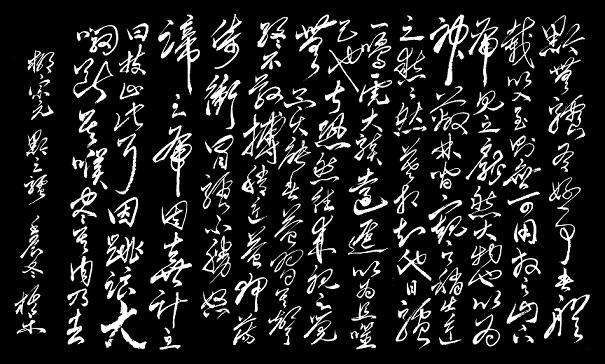 黔無驢有好事者船
載以入至則無可用放之山下
虎見之龐然大物也以為
神蔽林間窺之稍出近
之慭慭然莫相知他日驢
一鳴虎大駭遠遁以為且噬
己也甚恐然往來視之覺
無異能者益習其聲
終不敢搏稍近益狎蕩
倚衝冒驢不勝怒
蹄之虎因喜計之
曰技止此耳因跳踉大
㘎斷其喉盡其肉乃去
柳宗元 黔之驢 冬